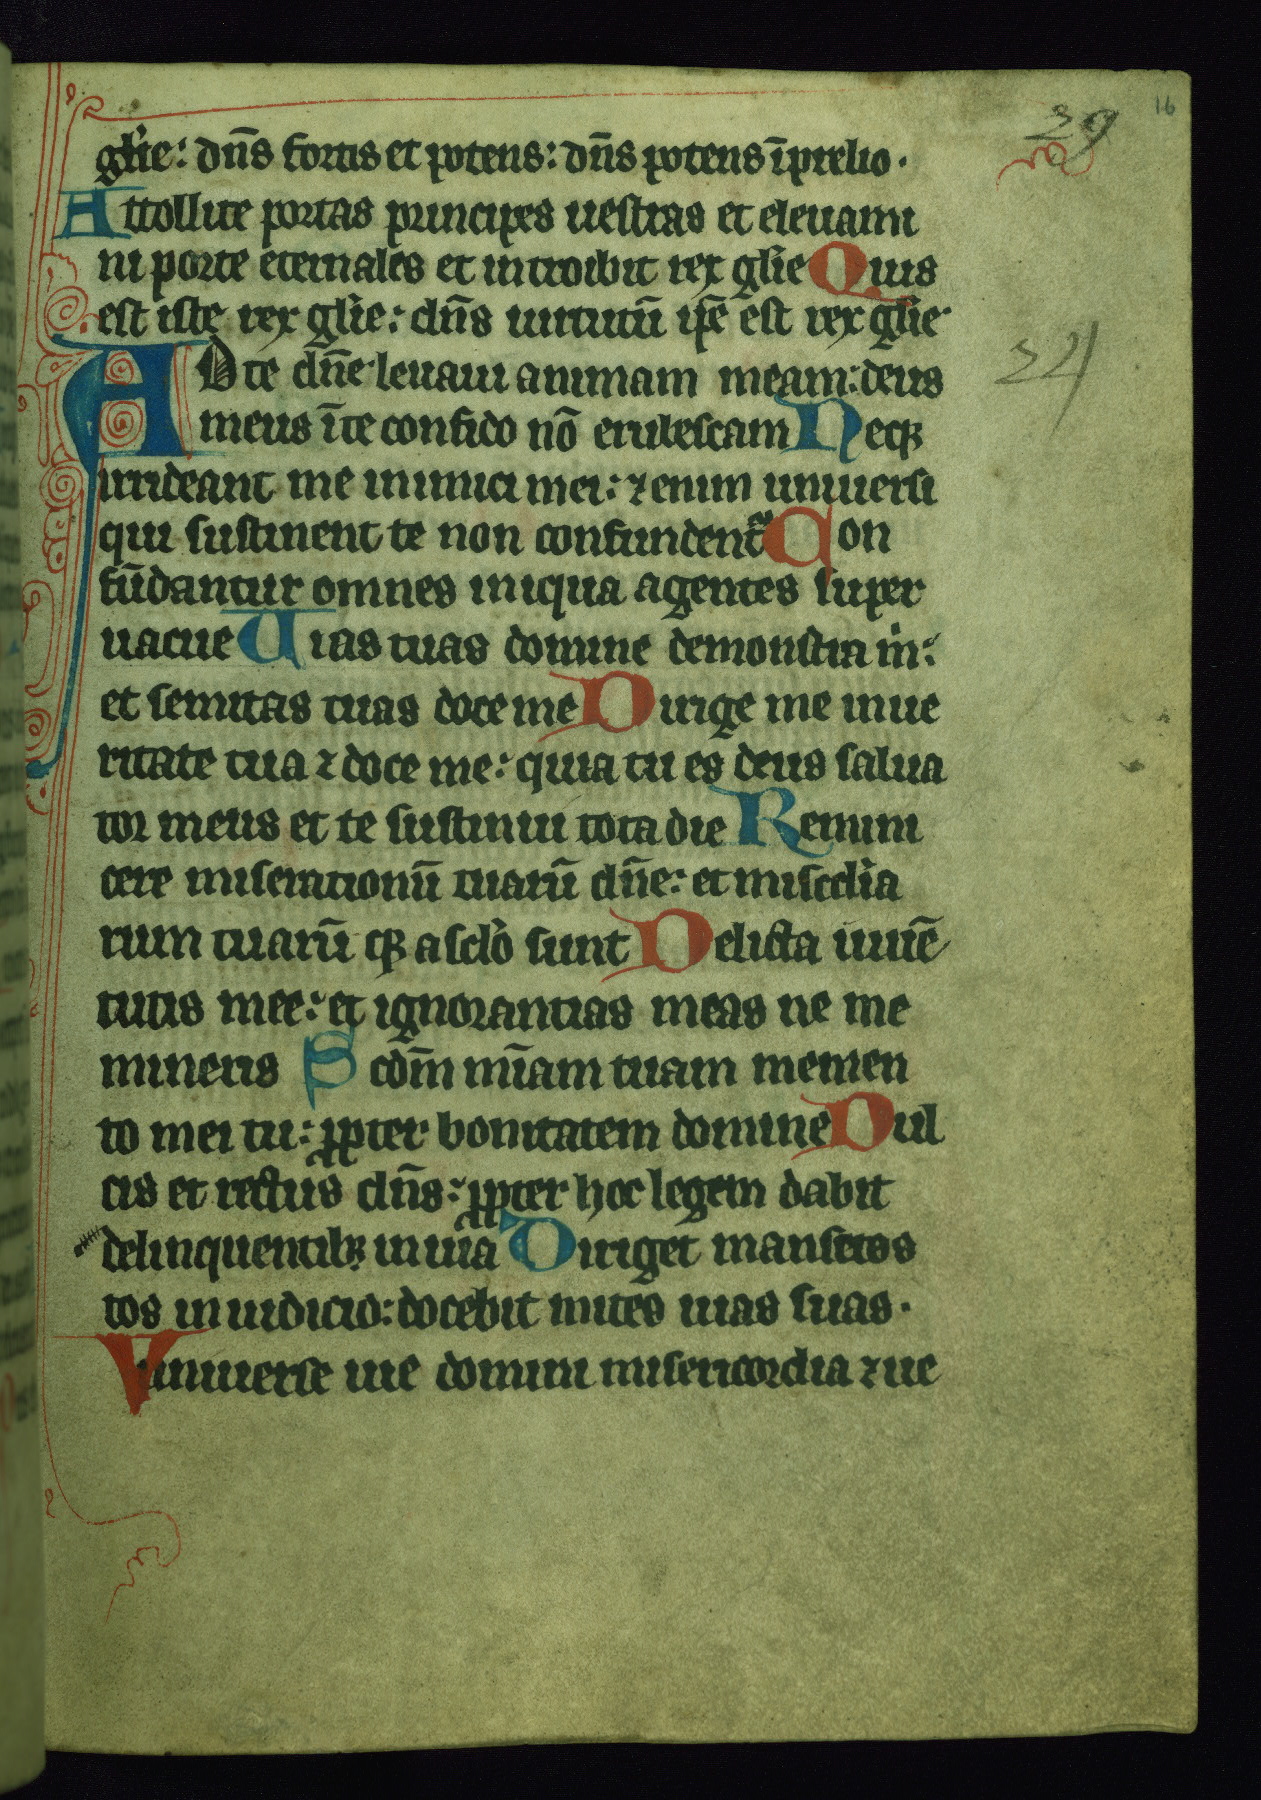 16
29
gl̄ie: dn̄s fortis et potens: dn̄s potens ī prelio.
Attollite portas principes uestras et eleuami
ni porte eternales et introibit rex gl̄ie Quis
est iste rex gl̄ie: dn̄s uirtutū ip̄e est rex gl̄ie
24
AD te dn̄e leuaui animam meam: deus
meus ī te confido nō erubescam Neqꝫ
irrideant me inimici mei: ⁊ enim uniuersi
qui sustinent te non confundent᷑ Con
fūdantur omnes iniqua agentes super
uacue Uias tuas domine demonstra m̄:
et semitas tuas doce me Dirige me in ue
ritate tua ⁊ doce me: quia tu es deus salua
tor meus et te sustinui tota die Remini
cere miserationū tuarū dn̄e: et misc̄dia
rum tuarū qꝫ a sclō sunt Delicta iuuē
tutis mee: et ignorantias meas ne me
mineris Scdm̄ mīam tuam memen
to mei tu: ꝓpter bonitatem domine Dul
cis et rectus dn̄s: ꝓpter hoc legem dabit
delinquentibꝫ in uia Diriget mansctos
tos in iudicio: docebit mites uias suas.
Vniuerse uie domini misericordia ⁊ ue